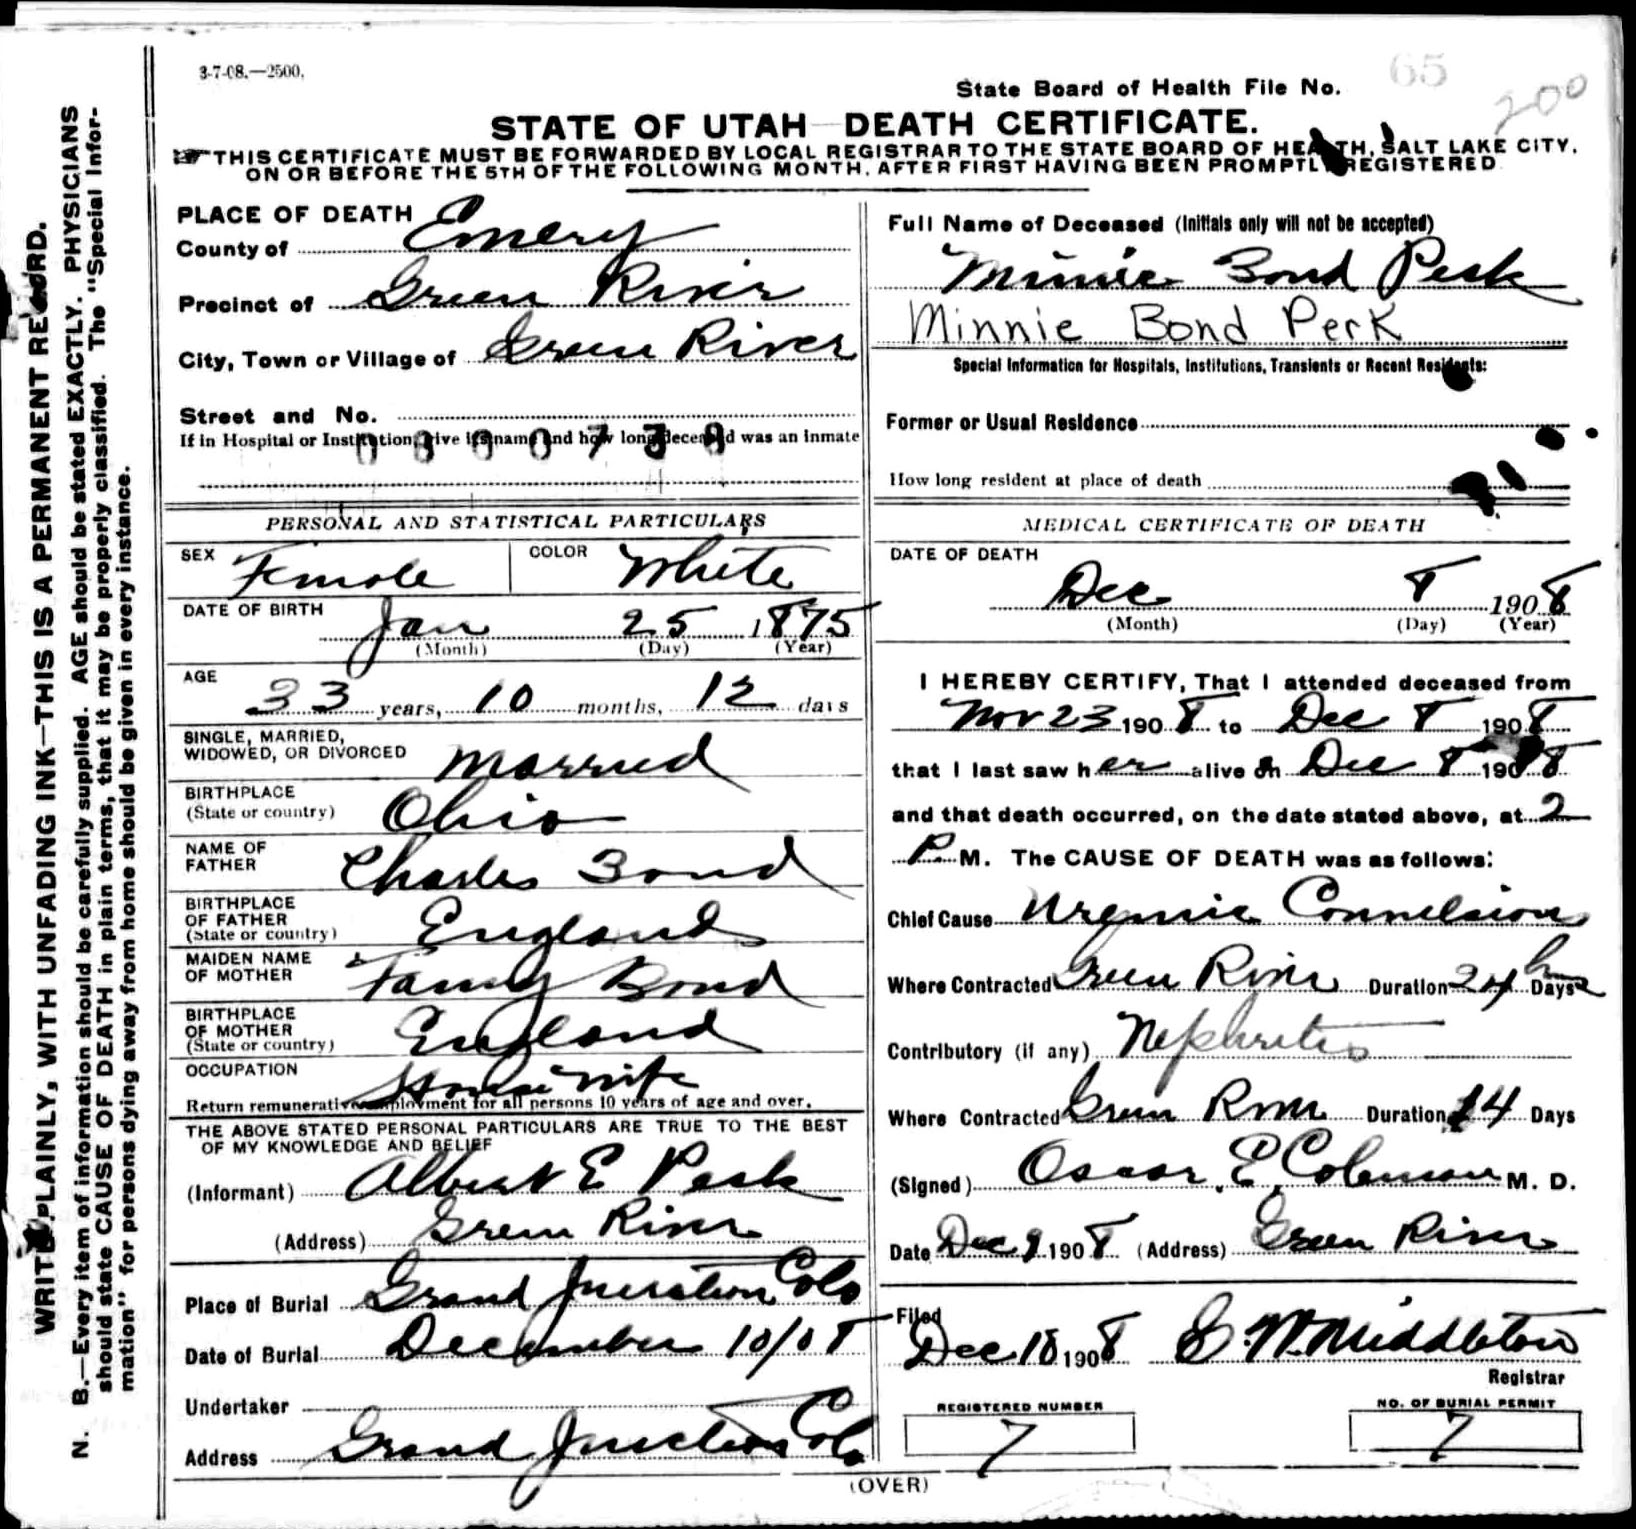 3-7-08.—2500.
65
State Board of Health File No.
200
STATE OF UTAH—DEATH CERTIFICATE.
THIS CERTIFICATE MUST BE FORWARDED BY LOCAL REGISTRAR TO THE STATE BOARD OF HEALTH, SALT LAKE CITY,
ON OR BEFORE THE 5TH OF THE FOLLOWING MONTH, AFTER FIRST HAVING BEEN PROMPTLY REGISTERED
WRITE PLAINLY, WITH UNFADING INK—THIS IS A PERMANENT RECORD.
N. B.—Every item of information should be carefully supplied. AGE should be stated EXACTLY. PHYSICIANS
should state CAUSE OF DEATH in plain terms, that it may be properly classified. The "Special Infor-
mation" for persons dying away from home should be given in every instance.
PLACE OF DEATH
County of Emery
Precinct of Green River
City, Town or Village of Green River
Street and No.
If in Hospital or Institution, give its name and how long deceased was an inmate
PERSONAL AND STATISTICAL PARTICULARS
SEX Female COLOR White
DATE OF BIRTH
Jan 25 1875
(Month) (Day) (Year)
AGE
33 years, 10 months, 12 days
SINGLE, MARRIED,
WIDOWED, OR DIVORCED Married
BIRTHPLACE
(State or country) Ohio
NAME OF
FATHER Charles Bond
BIRTHPLACE
OF FATHER
(State or country) England
MAIDEN NAME
OF MOTHER Fanny Bond
BIRTHPLACE
OF MOTHER
(State or country) England
OCCUPATION Housewife
Return remunerative employment for all persons 10 years of age and over.
THE ABOVE STATED PERSONAL PARTICULARS ARE TRUE TO THE BEST
OF MY KNOWLEDGE AND BELIEF
(Informant) Albert E Peck
(Address) Green River
Place of Burial Grand Junction Colo
Date of Burial December 10/08
Undertaker
Address Grand Junction Colo
Full Name of Deceased (Initials only will not be accepted)
Minnie Bond Peck
Minnie Bond Perk
Special Information for Hospitals, Institutions, Transients or Recent Residents:
Former or Usual Residence
How long resident at place of death
MEDICAL CERTIFICATE OF DEATH
DATE OF DEATH
Dec 8 1908
(Month) (Day) (Year)
I HEREBY CERTIFY, That I attended deceased from
Nov 23 1908 to Dec 8 1908
that I last saw her alive on Dec 8 1908
and that death occurred, on the date stated above, at 2
P. M. The CAUSE OF DEATH was as follows:
Chief Cause Uremic Convulsions
Where Contracted Green River Duration 24 hrs Days
Contributory (if any) Nephritis
Where Contracted Green River Duration 14 Days
(Signed) Oscar E. M. D.
Date Dec 9 1908 (Address) Green River
Filed
Dec 18 1908 E. W. Middleton
Registrar
REGISTERED NUMBER
7
NO. OF BURIAL PERMIT
7
(OVER)